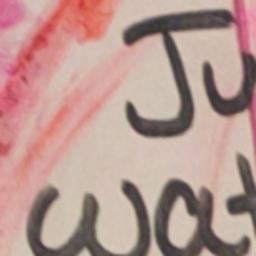 Ju
wat